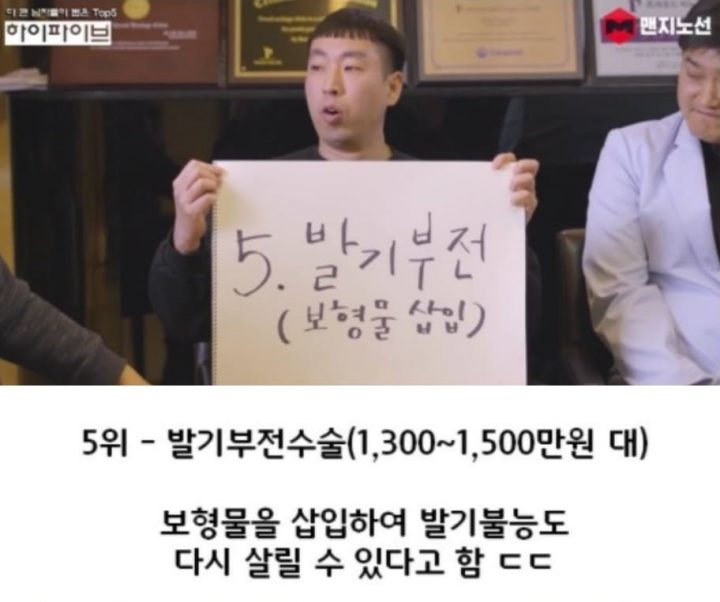 더 큰 남자들이 뽑은 Top5
하이파이브
맨지노선
5. 발기부전
(보형물 삽입)
5위 - 발기부전수술(1,300~1,500만원 대)
보형물을 삽입하여 발기불능도
다시 살릴 수 있다고 함 ㄷㄷ